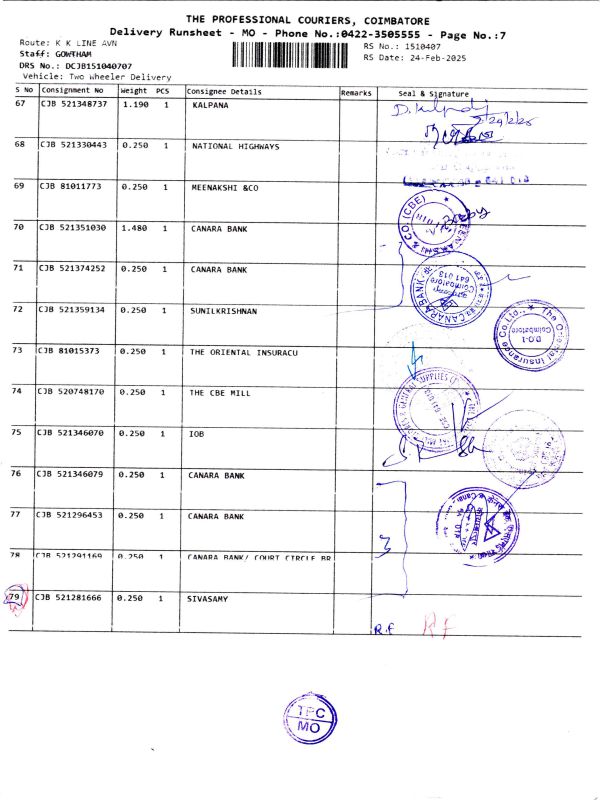 THE PROFESSIONAL COURIERS, COIMBATORE
Delivery Runsheet - MO - Phone No.:0422-3505555 - Page No.:7
Route: K K LINE AVN
RS No.: 1510407
Staff: GOWTHAM
RS Date: 24-Feb-2025
DRS No.: DCJB151040707
Vehicle: Two Wheeler Delivery
S No Consignment No Weight PCS Consignee Details Remarks Seal & Signature
67 CJB 521348737 1.190 1 KALPANA
68 CJB 521330443 0.250 1 NATIONAL HIGHWAYS
69 CJB 81011773 0.250 1 MEENAKSHI &CO
70 CJB 521351030 1.480 1 CANARA BANK
71 CJB 521374252 0.250 1 CANARA BANK
72 CJB 521359134 0.250 1 SUNILKRISHNAN
73 CJB 81015373 0.250 1 THE ORIENTAL INSURACU
74 CJB 520748170 0.250 1 THE CBE MILL
75 CJB 521346070 0.250 1 IOB
76 CJB 521346079 0.250 1 CANARA BANK
77 CJB 521296453 0.250 1 CANARA BANK
78 CJB 521291169 0.250 1 CANARA BANK/ COURT CIRCLE BR
79 CJB 521281666 0.250 1 SIVASAMY
3
R.F RF
The Oriental Insurance Co.Ltd.,
D.O-1
Coimbatore
CANARA BANK
Coimbatore
641 018
TPC
MO